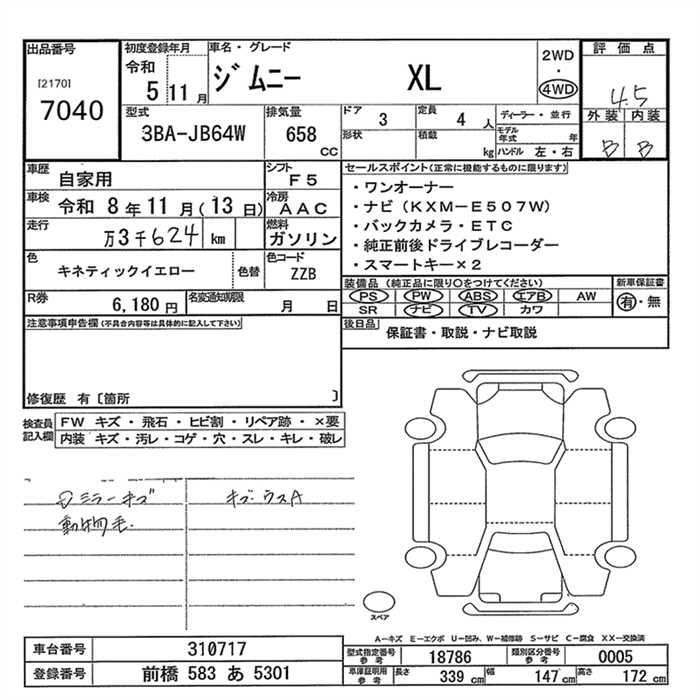 出品番号
[2170]
7040
初度登録年月
令和
5 11 月
車名・グレード
ジムニー XL
2WD
・
4WD
評価点
4.5
外装 内装
B B
型式
3BA-JB64W
排気量
658
CC
ドア 3
形状
定員 4 人
積載 kg
ディーラー・並行
モデル年式 年
ハンドル 左・右
車歴 自家用
シフト F5
車検 令和 8年 11月(13日)
冷房 AAC
走行 万3千624 km
燃料 ガソリン
色 キネティックイエロー 色替
色コード ZZB
R券 6,180円
名変通知期限 月 日
セールスポイント(正常に機能するものに限ります)
・ワンオーナー
・ナビ(KXM-E507W)
・バックカメラ・ETC
・純正前後ドライブレコーダー
・スマートキー×2
装備品(純正品に限り○をつけてください)
PS PW ABS エアB AW
SR ナビ TV カワ
新車保証書
有・無
後日品 保証書・取説・ナビ取説
注意事項申告欄(不具合内容等は具体的に記入して下さい)
修復歴 有〔箇所 〕
検査員記入欄
FW キズ・飛石・ヒビ割・リペア跡・×要
内装 キズ・汚レ・コゲ・穴・スレ・キレ・破レ
ミラーキズ
動物毛.
キズ・ウスA
スペア
A-キズ E-エクボ U-凹み、W-補修跡 S-サビ C-腐食 XX-交換済
車台番号 310717
登録番号 前橋 583 あ 5301
型式指定番号 参考 18786
類別区分番号 参考 0005
車庫証明用 参考 長さ 339 cm 幅 147 cm 高さ 172 cm